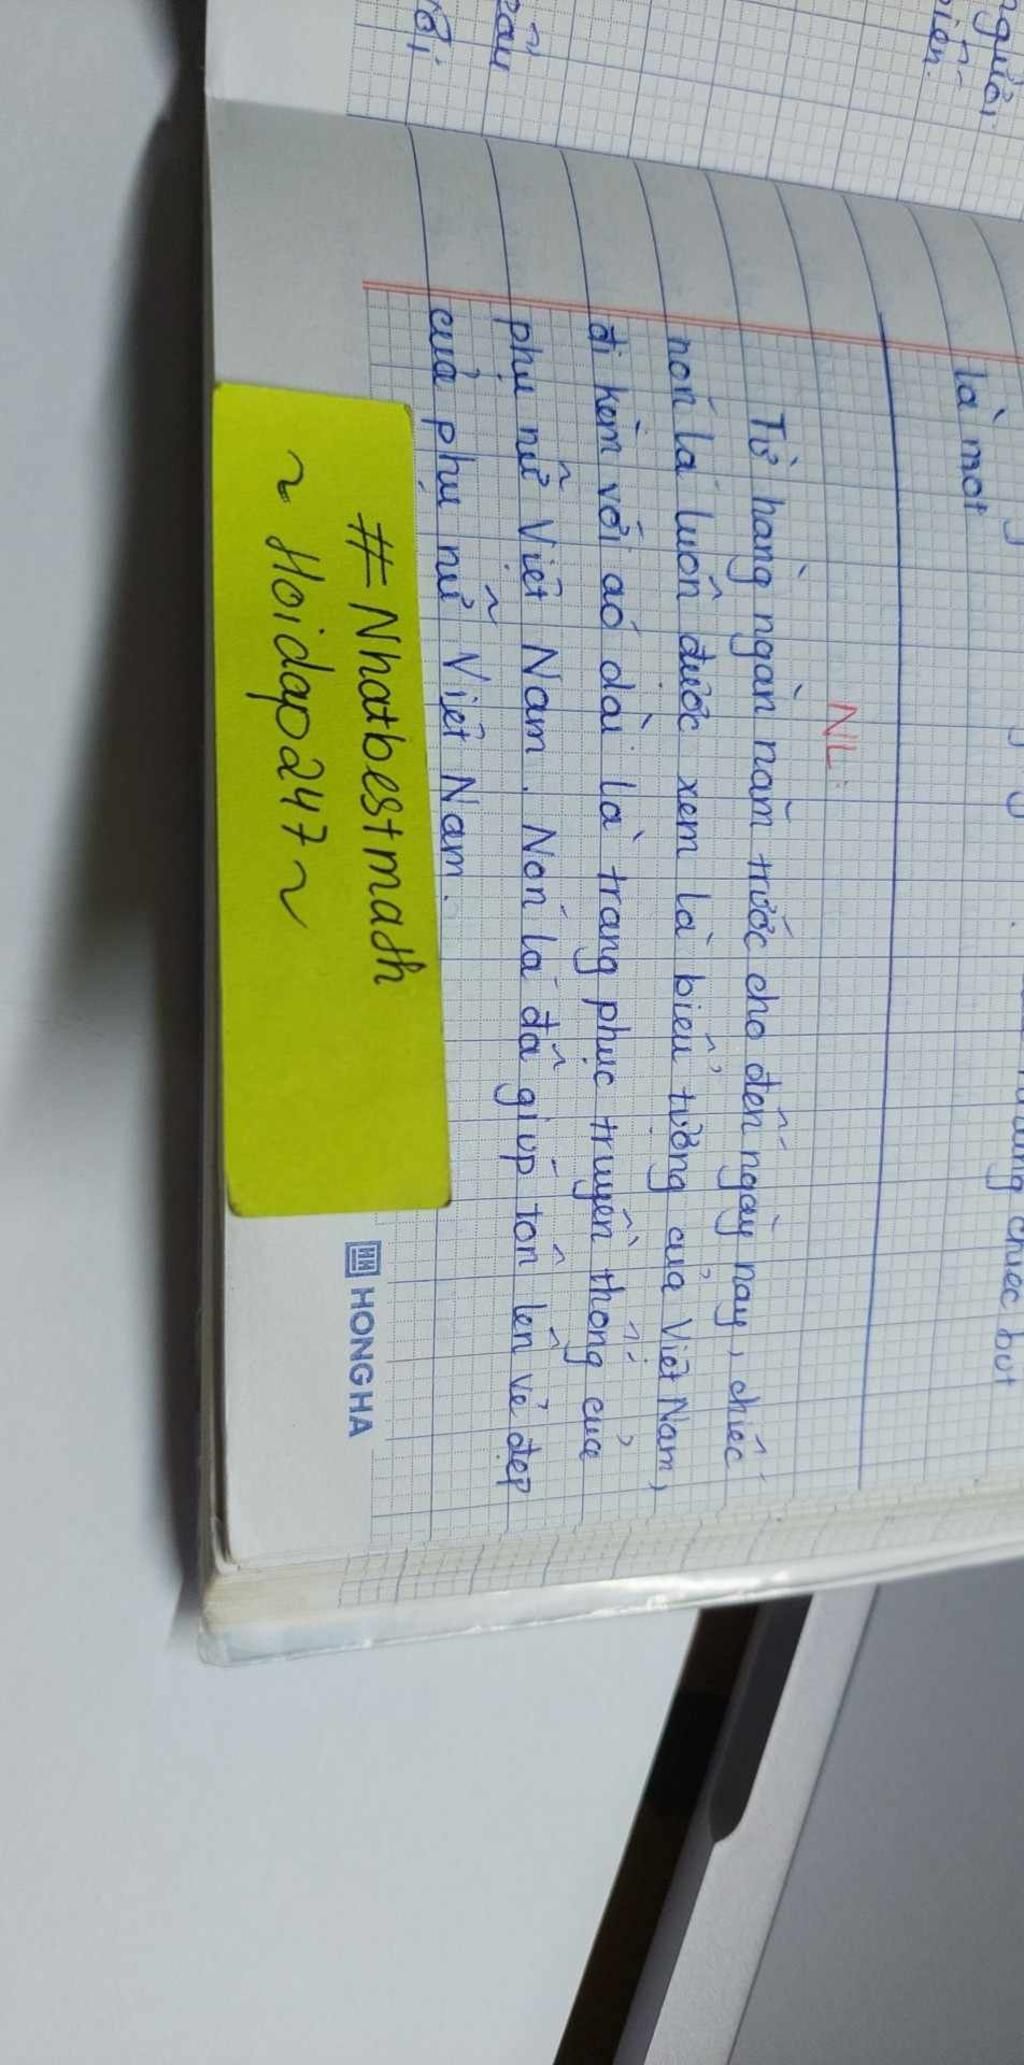 người
viên.
là một
chiếc bút
NL:
Từ hàng ngàn năm trước cho đến ngày nay, chiếc
nón lá luôn được xem là biểu tượng của Việt Nam,
đi kèm với áo dài là trang phục truyền thống của
phụ nữ Việt Nam. Nón lá đã giúp tôn lên vẻ đẹp
của phụ nữ Việt Nam.
#Nhatbestmath
~ Hoidap247 ~
HONG HA